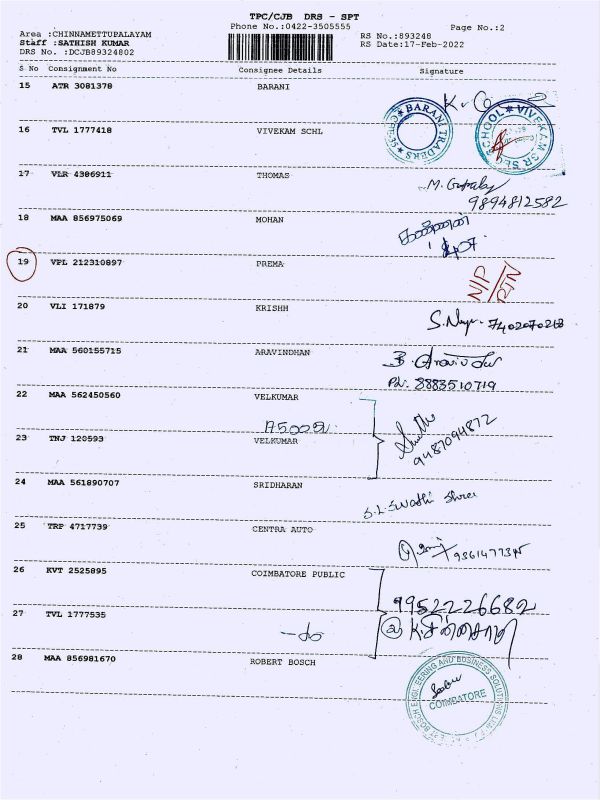 TPC/CJB DRS - SPT
Phone No.:0422-3505555
Page No.:2
Area :CHINNAMETTUPALAYAM
Staff :SATHISH KUMAR
DRS No. :DCJB89324802
RS No.:893248
RS Date:17-Feb-2022
S No Consignment No Consignee Details Signature
15 ATR 3081378 BARANI
BARANI TRADERS
16 TVL 1777418 VIVEKAM SCHL
VIVEKAM SR SE SCHOOL
17 VLR 4386911 THOMAS
9894812582
18 MAA 856975069 MOHAN
19 VPL 212310897 PREMA
N/P
RTN
20 VLI 171879 KRISHH
21 MAA 560155715 ARAVINDHAN
8883510719
22 MAA 562450560 VELKUMAR
23 TNJ 120593 VELKUMAR
9487094872
24 MAA 561890707 SRIDHARAN
S.L. Swathi Shree
25 TRP 4717739 CENTRA AUTO
26 KVT 2525895 COIMBATORE PUBLIC
9952226682
27 TVL 1777535
28 MAA 856981670 ROBERT BOSCH
BOSCH ENGINEERING AND BUSINESS SOLUTIONS
COIMBATORE